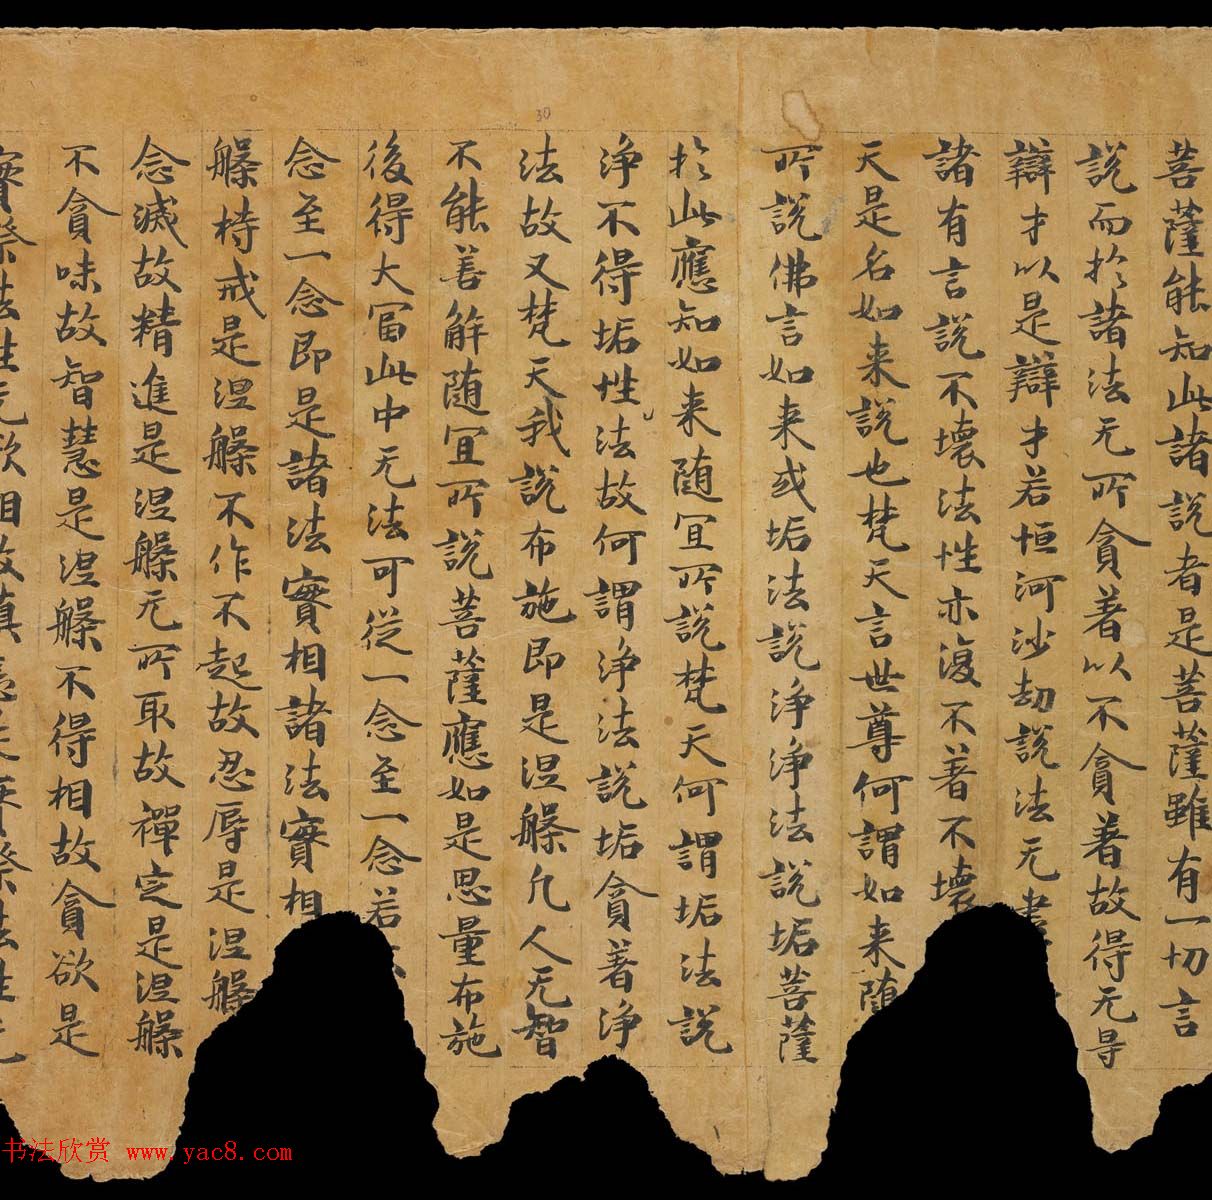 菩薩能知此諸說者是菩薩雖有一切言
說而於諸法无所貪著以不貪著故得无㝵
辯才以是辯才若恒河沙劫說法无盡
諸有言說不壞法性亦復不著不壞
天是名如来說也梵天言世尊何謂如来随
所說佛言如来或垢法說淨淨法說垢菩薩
於此應知如来随冝所說梵天何謂垢法說
淨不得垢性法故何謂淨法說垢貪著淨
法故又梵天我說布施即是涅槃凡人无智
不能善解随冝所說菩薩應如是思量布施
後得大富此中无法可從一念至一念若
念至一念即是諸法實相諸法實相
槃持戒是涅槃不作不起故忍辱是涅槃
念滅故精進是涅槃无所取故禪定是涅槃
不貪味故智慧是涅槃不得相故貪欲是
實際法性无欲相故瞋恚是實際法性无
30
书法欣赏 www.yac8.com